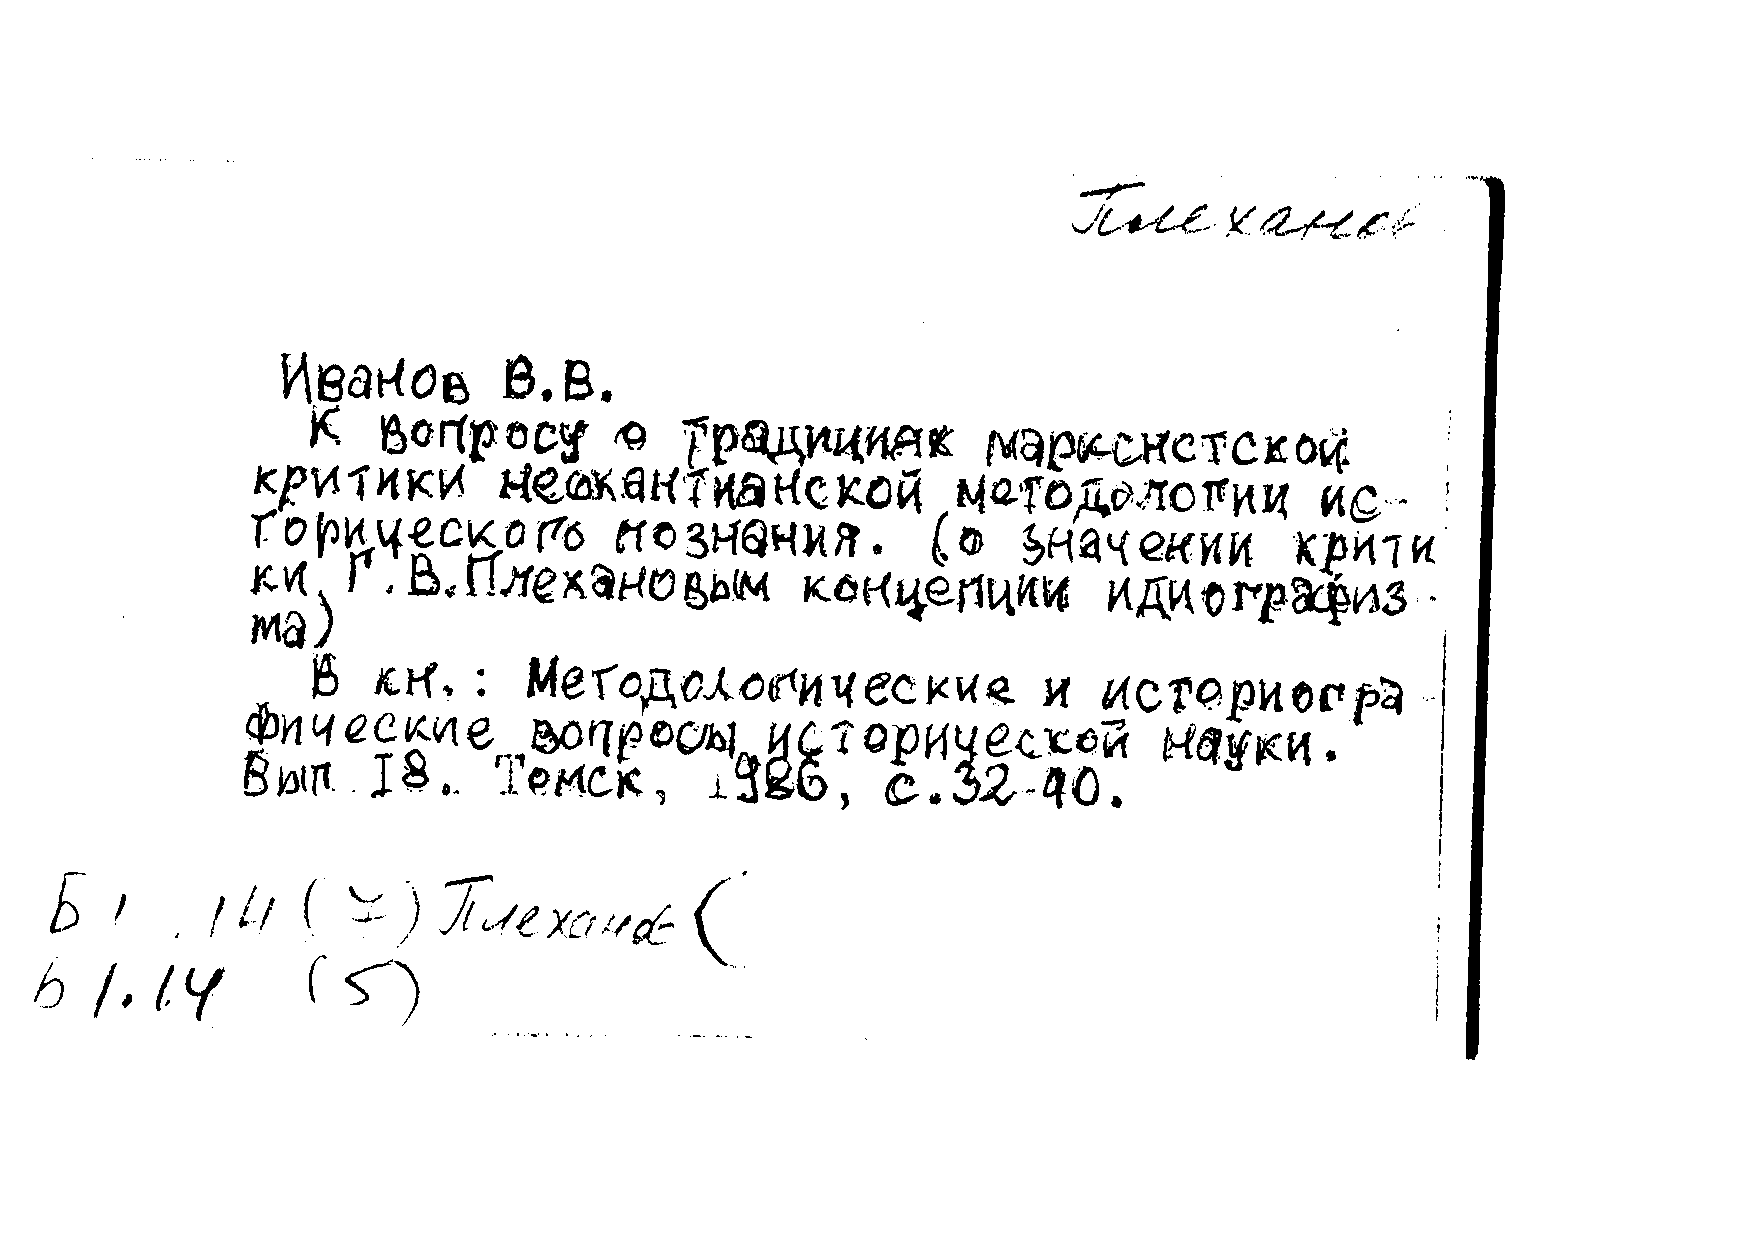 Плеханов
Иванов В.В.
К вопросу о традициях марксистской
критики неокантианской методологии ис-
торического познания. (о значении крити
ки Г.В.Плехановым концепции идиографиз-
ма)
В кн.: Методологические и историогра-
фические вопросы исторической науки.
Вып 18. Томск, 1986, с.32-40.
Б1.14( ) Плеханов (
Б 1.14 (5)